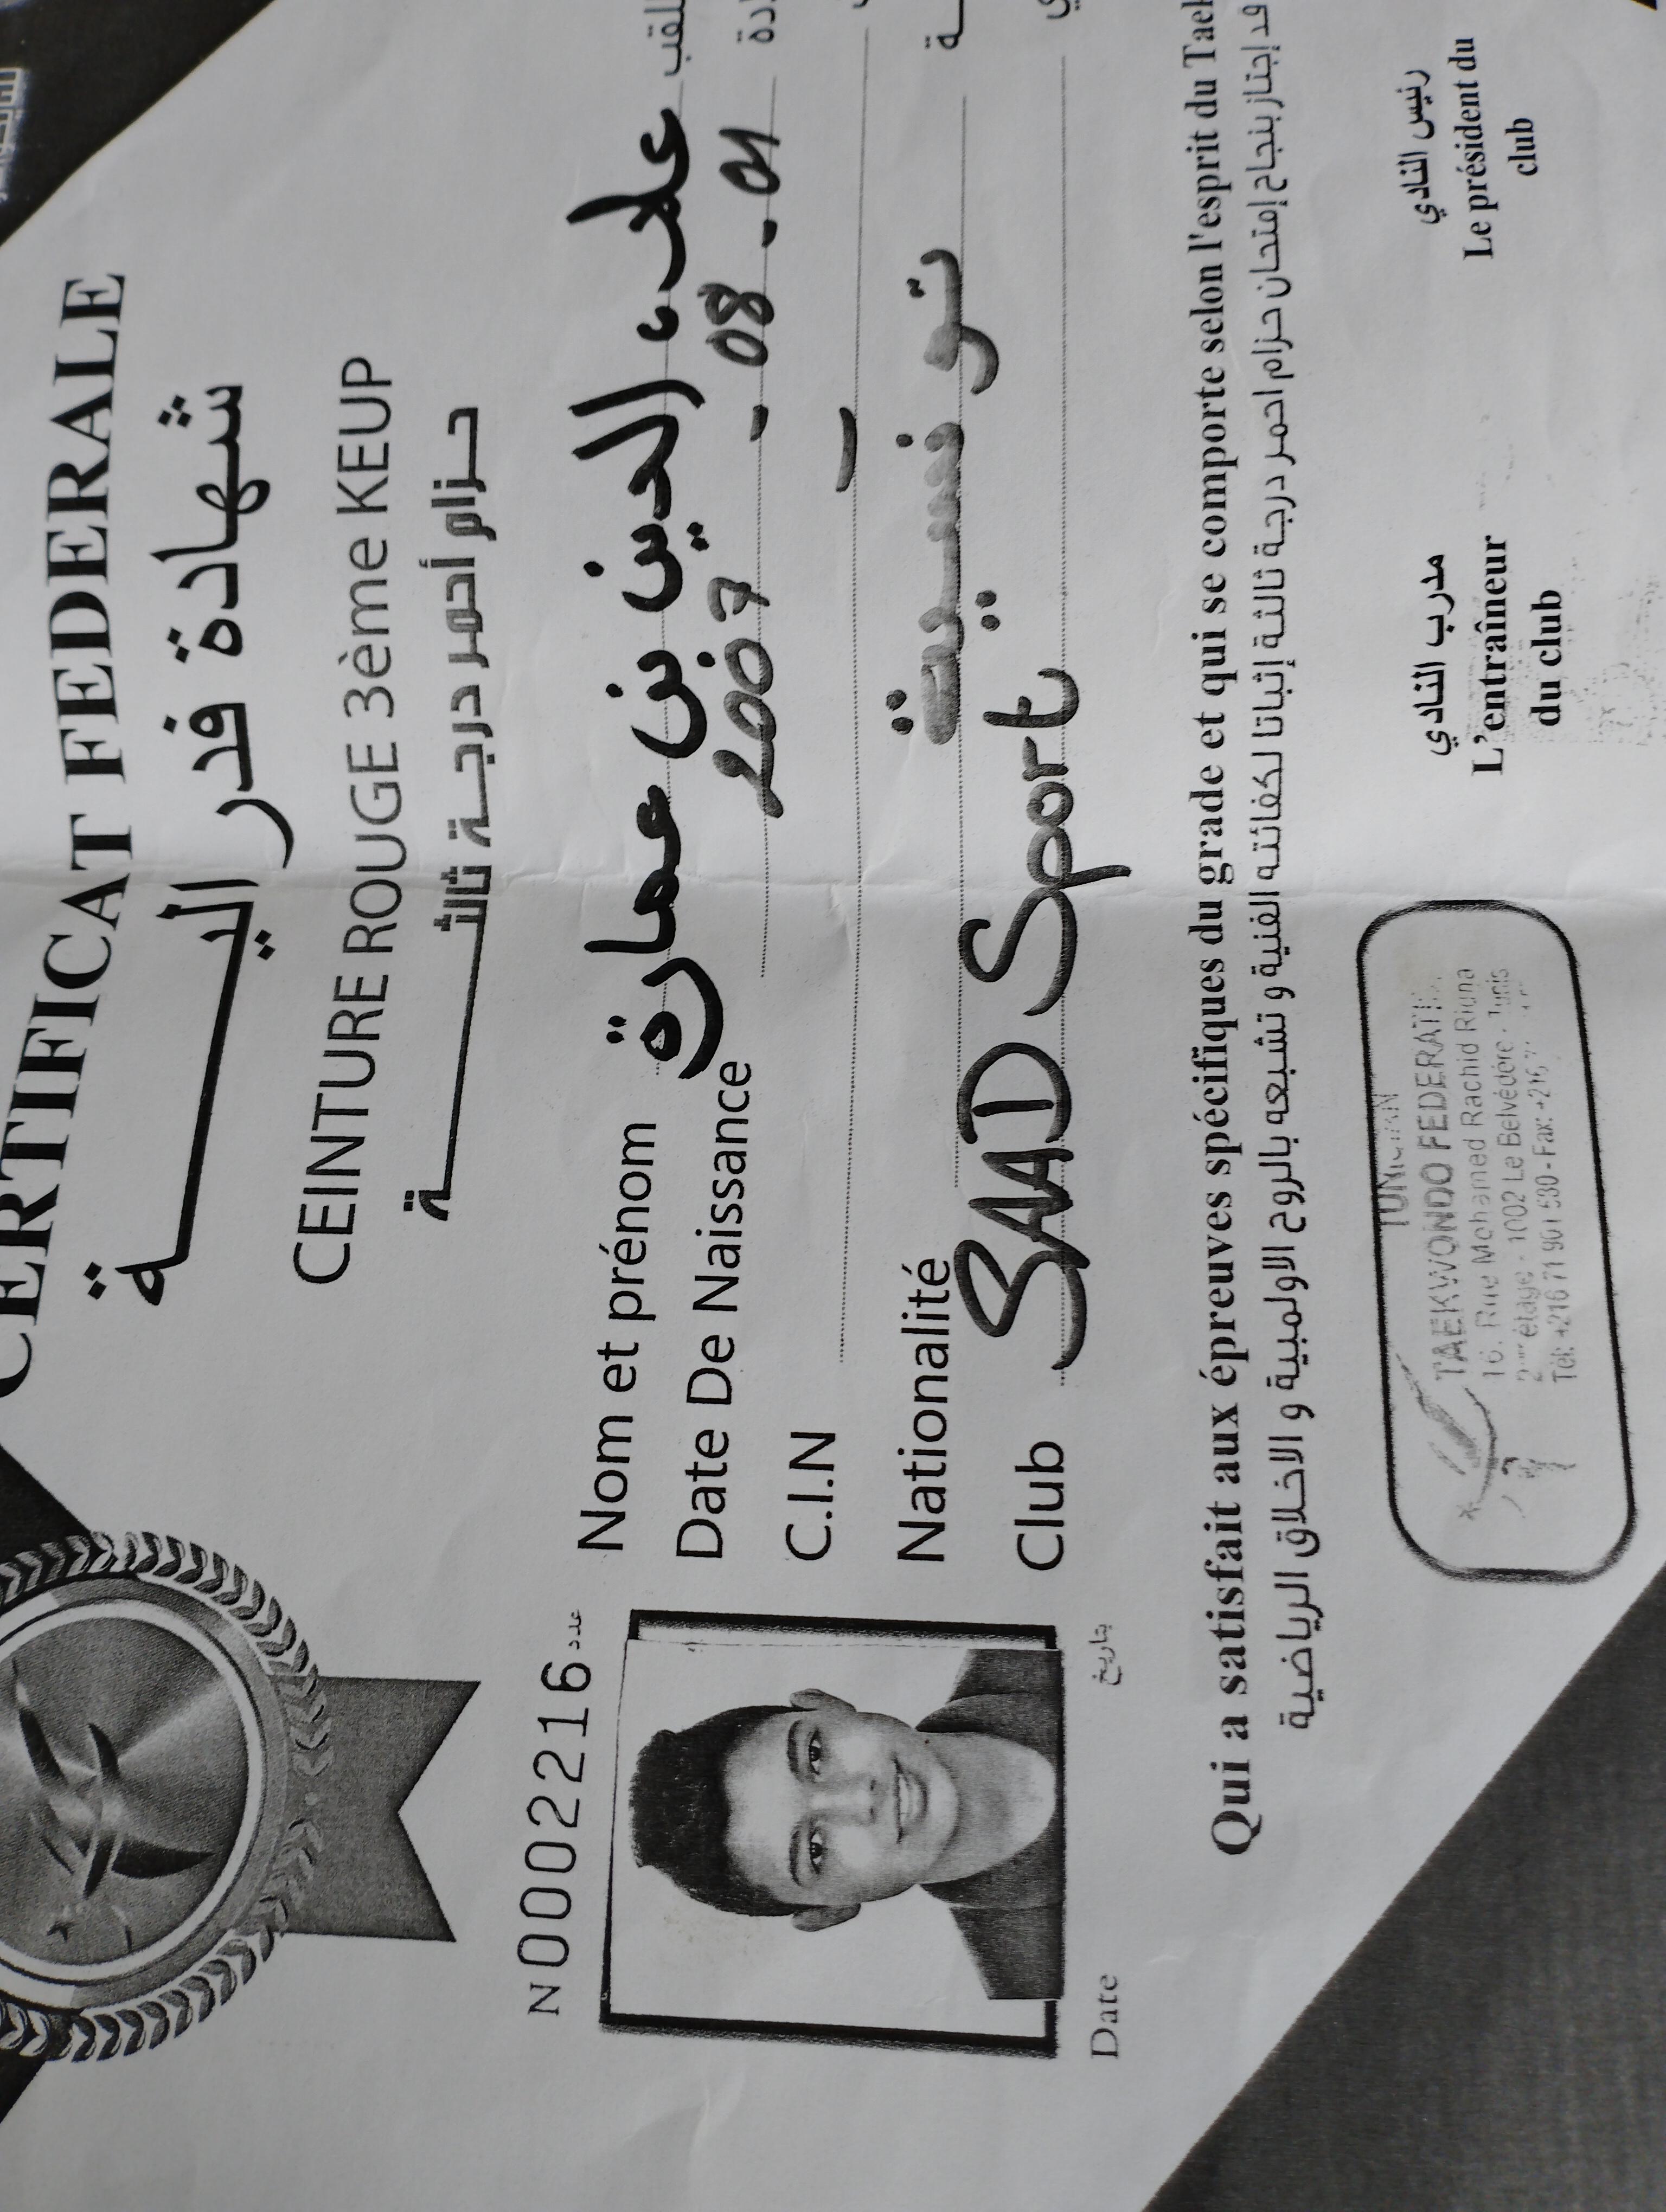 CERTIFICAT FEDERALE
شهادة فدراليـــة
CEINTURE ROUGE 3ème KEUP
حزام أحمر درجة ثالثـــة
N0002216 عدد
Nom et prénom علاء الدين بن عمارة
Date De Naissance 2007 - 08 - 01
C.I.N
Nationalité تونسية
Club SAAD Sport
Date بتاريخ
Qui a satisfait aux épreuves spécifiques du grade et qui se comporte selon l'esprit du
قد إجتاز بنجاح إمتحان حزام احمر درجة ثالثة إثباتا لكفائته الفنية و تشبعه بالروح الاولمبية و الاخلاق الرياضية
مدرب النادي
L'entraîneur
du club
رئيس النادي
Le président du
club
TAEKWONDO FEDERATI
16, Rue Mohamed Rachid Ridha
étage - 1002 Le Belvédère - Tunis
Tél: +216 71 901 530 - Fax: +216